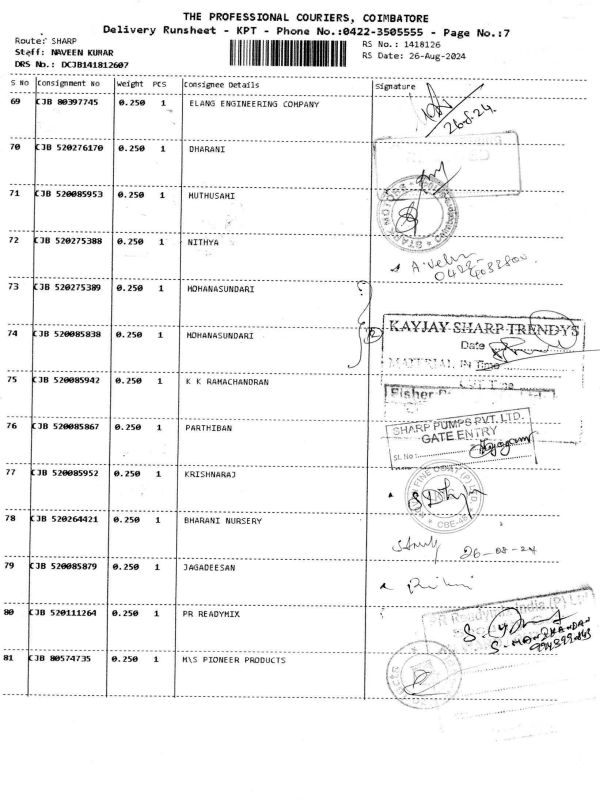 THE PROFESSIONAL COURIERS, COIMBATORE
Delivery Runsheet - KPT - Phone No.:0422-3505555 - Page No.:7
Route: SHARP
Staff: NAVEEN KUMAR
DRS No.: DCJB141812607
RS No.: 1418126
RS Date: 26-Aug-2024
S No Consignment No Weight PCS Consignee Details Signature
69 CJB 80397745 0.250 1 ELANG ENGINEERING COMPANY
26.8.24.
70 CJB 520276170 0.250 1 DHARANI
71 CJB 520085953 0.250 1 MUTHUSAMI
STARK MOTORS
72 CJB 520275388 0.250 1 NITHYA
A.Velu
0422-
4033800
73 CJB 520275389 0.250 1 MOHANASUNDARI
74 CJB 520085838 0.250 1 MOHANASUNDARI
2
KAYJAY SHARP TRENDYS
Date
MATERIAL IN Time
75 CJB 520085942 0.250 1 K K RAMACHANDRAN
Fisher
76 CJB 520085867 0.250 1 PARTHIBAN
SHARP PUMPS PVT. LTD.
GATE ENTRY
SL No :
77 CJB 520085952 0.250 1 KRISHNARAJ
CBE-48
78 CJB 520264421 0.250 1 BHARANI NURSERY
26-08-24
79 CJB 520085879 0.250 1 JAGADEESAN
80 CJB 520111264 0.250 1 PR READYMIX
PR Readymix India (P) Ltd
S. MANIKANDAN
81 CJB 80574735 0.250 1 M\S PIONEER PRODUCTS